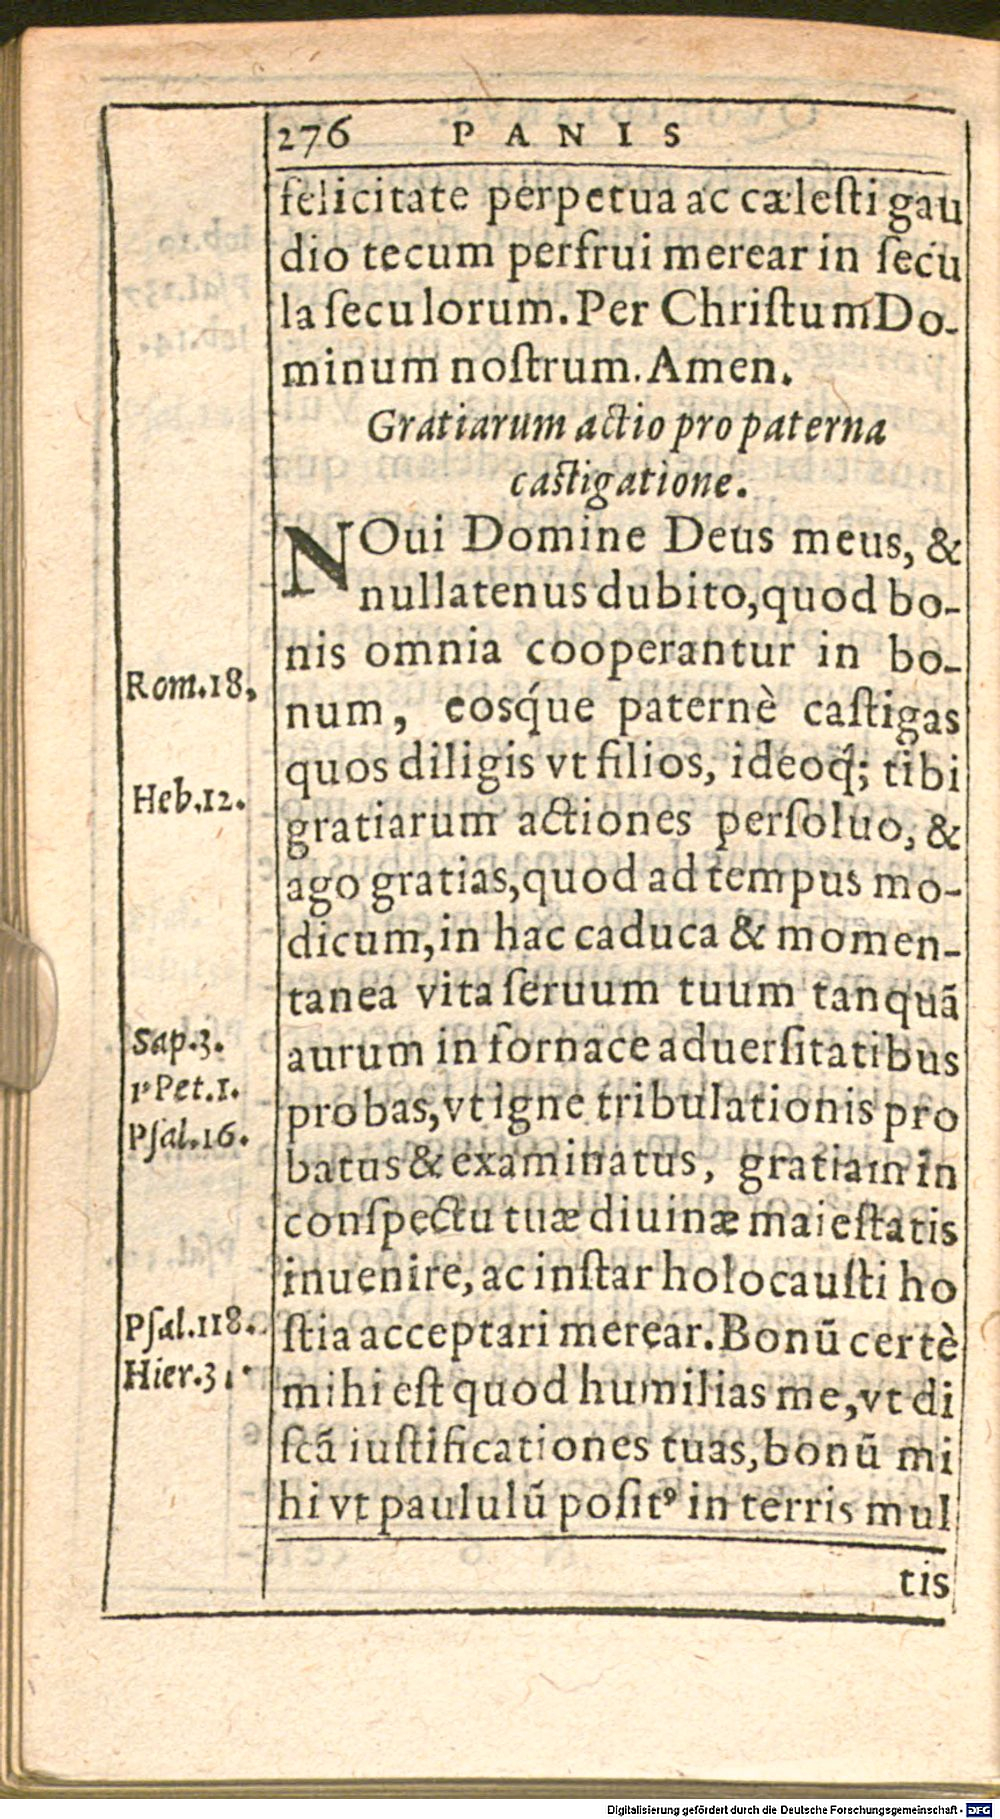 276 PANIS
felicitate perpetua ac cælesti gau
dio tecum perfrui merear in secu
la seculorum. Per Christum Do-
minum nostrum. Amen.
Gratiarum actio pro paterna
castigatione.
NOui Domine Deus meus, &
nullatenus dubito, quod bo-
nis omnia cooperantur in bo-
Rom.18,
num, eosq́ue paternè castigas
Heb.12.
quos diligis vt filios, ideoq́; tibi
gratiarum actiones persoluo, &
ago gratias, quod ad tempus mo-
dicum, in hac caduca & momen-
tanea vita seruum tuum tanquā
Sap.3.
aurum in fornace aduersitatibus
1. Pet.1.
probas, vt igne tribulationis pro
Psal.16.
batus & examinatus, gratiam in
conspectu tuæ diuinæ maiestatis
inuenire, ac instar holocausti ho
Psal.118.
stia acceptari merear. Bonū certè
Hier.31.
mihi est quod humilias me, vt di
scā iustificationes tuas, bonū mi
hi vt paululū positꝰ in terris mul
tis
Digitalisierung gefördert durch die Deutsche Forschungsgemeinschaft - DFG